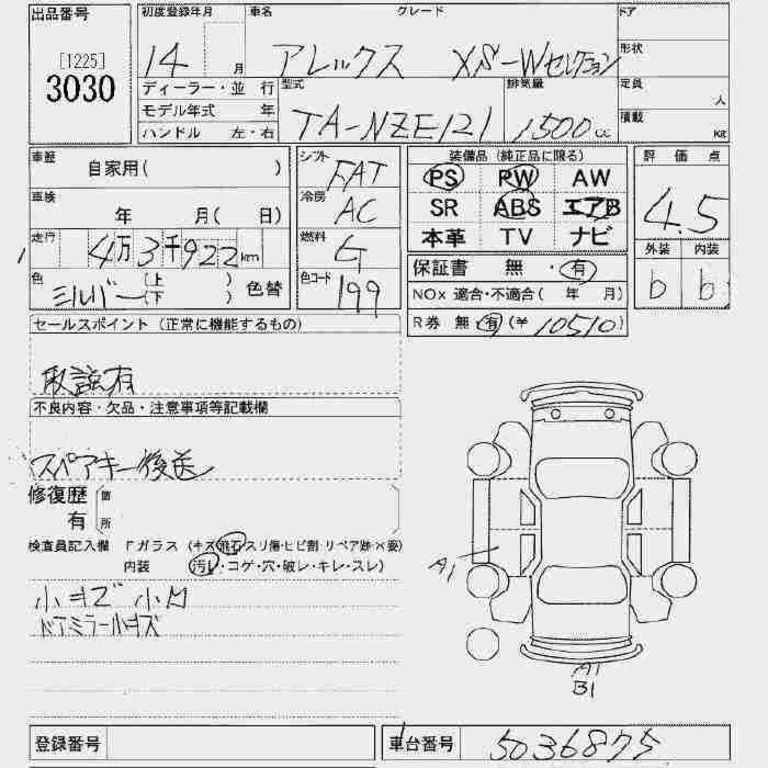 出品番号 初度登録年月 車名 グレード ドア
[1225]
3030
14 月 アレックス XS-Wセレクション 形状
ディーラー・並 行 型式 排気量 定員 人
モデル年式 年 TA-NZE121 1500cc 積載 kg
ハンドル 左・右
車歴 自家用( ) シフト FAT 装備品 (純正品に限る) 評価点
PS PW AW
車検 年 月( 日) 冷房 AC SR ABS エアB 4.5
走行 4万3千922km 燃料 G 本革 TV ナビ 外装 内装
色 シルバー (上 ) (下 ) 色替 色コード 199 保証書 無・有 b b
NOx 適合・不適合( 年 月)
セールスポイント (正常に機能するもの) R券 無 有 (¥ 10510)
取説有
不良内容・欠品・注意事項等記載欄
スペアキー後送
修復歴 箇
有 所
検査員記入欄 Fガラス (キズ・飛石・スリ傷・ヒビ割・リペア跡・X要)
内装 (汚レ・コゲ・穴・破レ・キレ・スレ)
A1
小キズ 小凹
ドアミラー小キズ
A1
B1
登録番号 車台番号 5036875